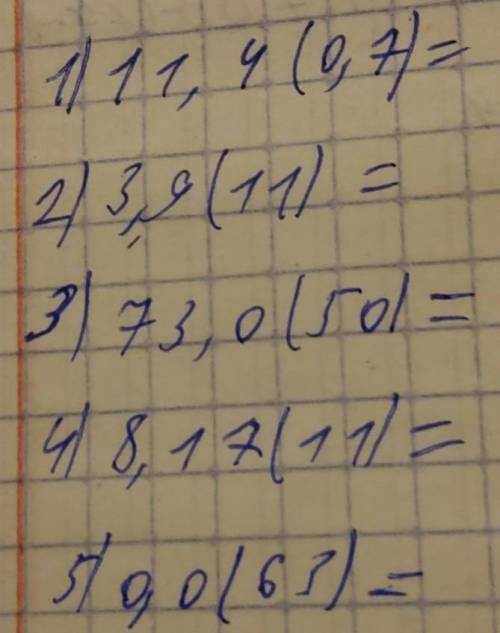 1) 11,4(0,7)=
2) 3,9(11)=
3) 73,0(50)=
4) 8,17(11)=
5) 0,0(63)=